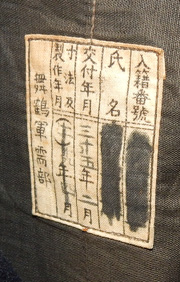 入籍番號
氏名
交付年月
三十五年二月
寸法及
製作年月
舞鶴軍需部